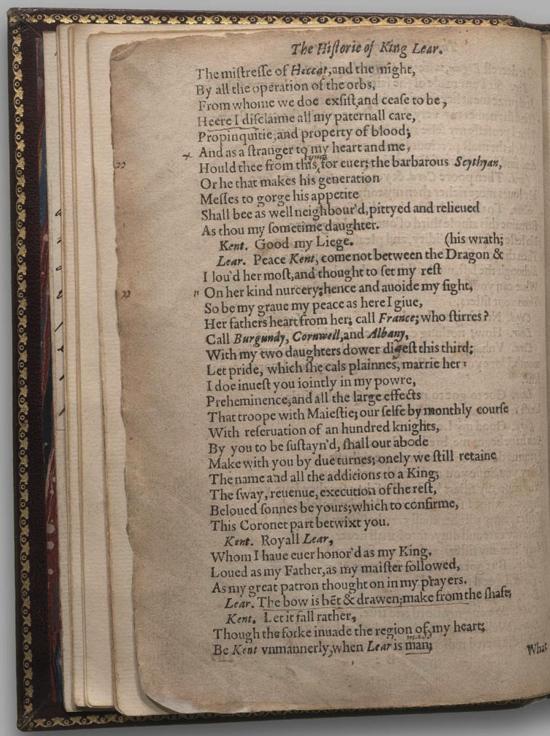 The Historie of King Lear.
The mistresse of Heccat, and the might,
By all the operation of the orbs,
From whome we doe exsist, and cease to be,
Heere I disclaime all my paternall care,
Propinquitie, and property of blood;
And as a stranger to my heart and me,
Hould thee from this, for euer; the barbarous Scythyan,
Or he that makes his generation
Messes to gorge his appetite
Shall bee as well neighbour'd, pittyed and relieued
As thou my sometime daughter.
Kent. Good my Liege. (his wrath;
Lear. Peace Kent, come not between the Dragon &
I lou'd her most, and thought to set my rest
On her kind nurcery; hence and auoide my sight,
So be my graue my peace as here I giue,
Her fathers heart from her; call France; who stirres?
Call Burgundy, Cornwell, and Albany,
With my two daughters dower digest this third;
Let pride, which she cals plainnes, marrie her:
I doe inuest you iointly in my powre,
Preheminence, and all the large effects
That troope with Maiestie; our selfe by monthly course
With reseruation of an hundred knights,
By you to be sustayn'd, shall our abode
Make with you by due turnes; onely we still retaine
The name and all the addicions to a King;
The sway, reuenue, execution of the rest,
Beloued sonnes be yours; which to confirme,
This Coronet part betwixt you.
Kent. Royall Lear,
Whom I haue euer honor'd as my King,
Loued as my Father, as my maister followed,
As my great patron thought on in my prayers.
Lear. The bow is bēt & drawen; make from the shaft;
Kent. Let it fall rather,
Though the forke inuade the region of my heart;
Be Kent vnmannerly, when Lear is man;
What